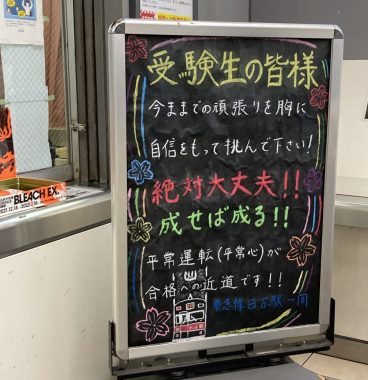 受験生の皆様
今までの頑張りを胸に
自信をもって挑んで下さい!
絶対大丈夫!!
成せば成る!!
平常運転(平常心)が
合格への近道です!!
東急線日吉駅一同
BLEACH EX.
2021.12.18 - 2022.1.16